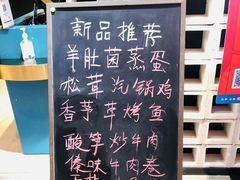 新品推荐
羊肚菌蒸蛋
松茸汽锅鸡
香芋草烤鱼
酸笋炒牛肉
傣味牛肉卷